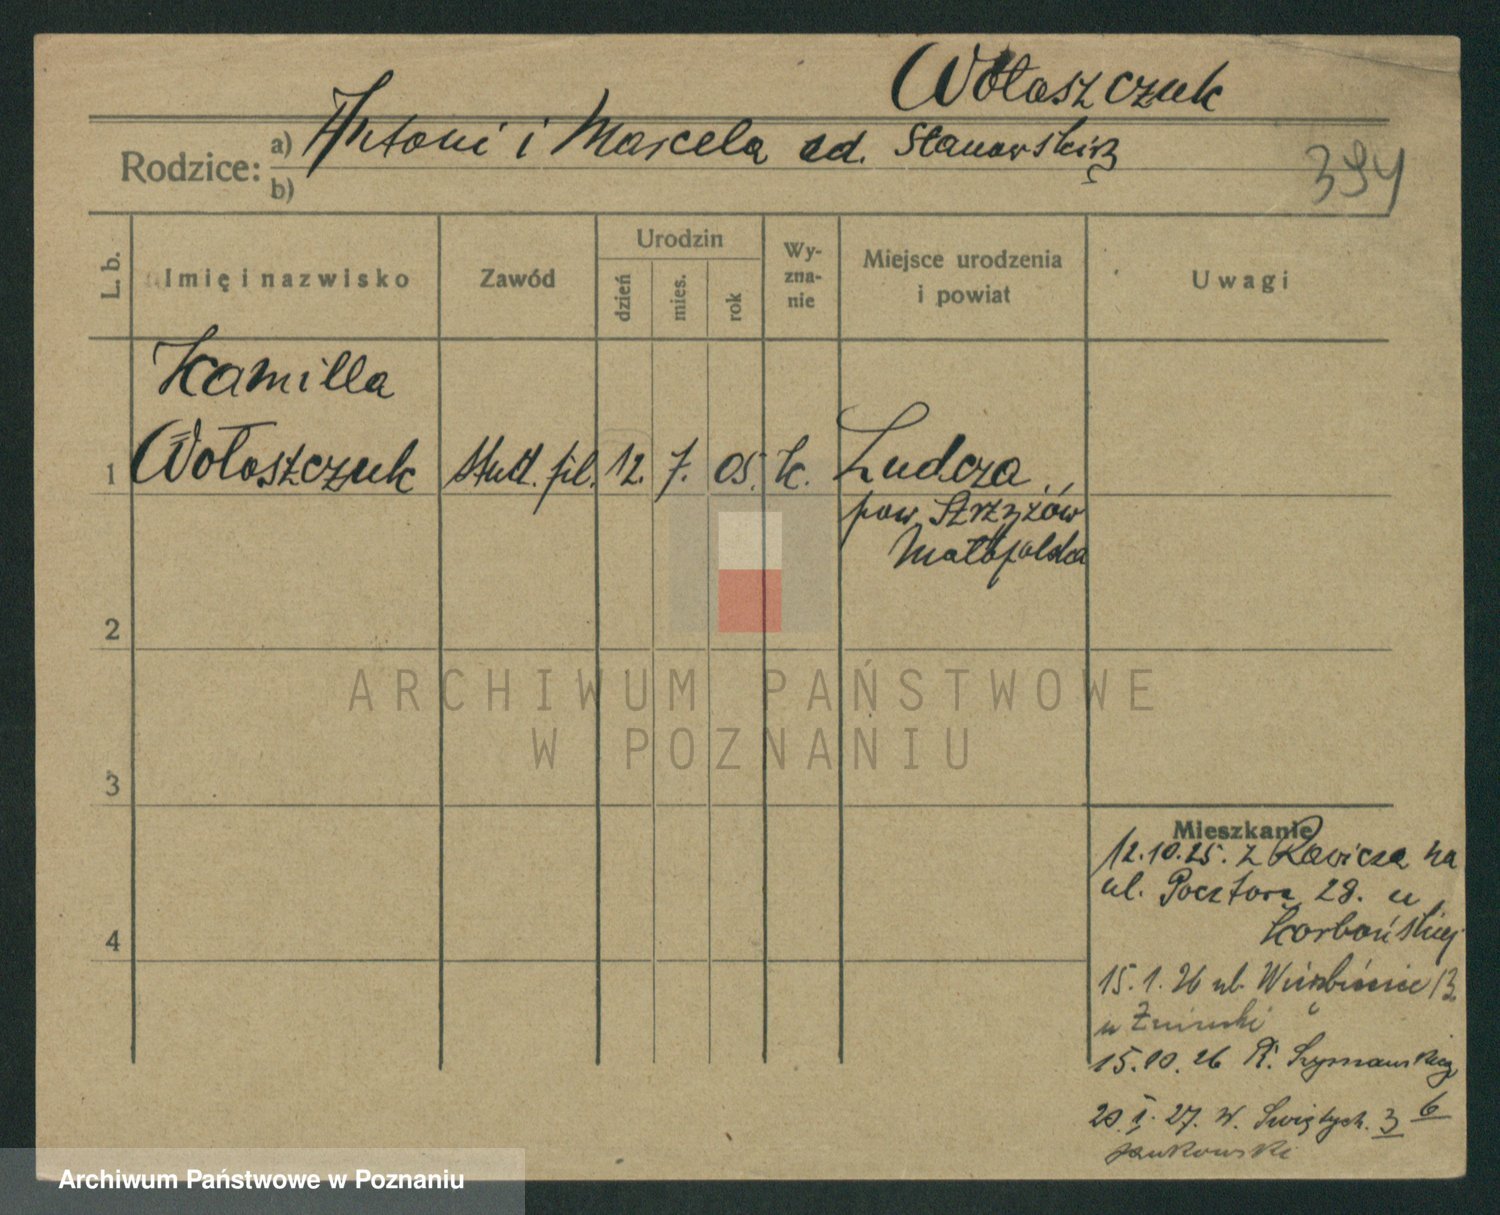 Wołoszczuk
Rodzice: a) Antoni i Marcela
b)
394
L. b.
Imię i nazwisko
Zawód
Urodzin
dzień
mies.
rok
Wy-
zna-
nie
Miejsce urodzenia
i powiat
Uwagi
Kamilla
1 Wołoszczuk stud. fil. 12. 7. 05. k. Ludcza
pow. Strzyżów
Małopolska
2
3
4
Mieszkanie
12.10.25. z Rawicza na
ul. Pocztowa 28. u
Korbońskiej
15.1.26 ul. 13.
u
15.10.26 Szymańskiego 6
20.1.27. W. Świętych 3
Jankowski
ARCHIWUM PAŃSTWOWE
W POZNANIU
Archiwum Państwowe w Poznaniu